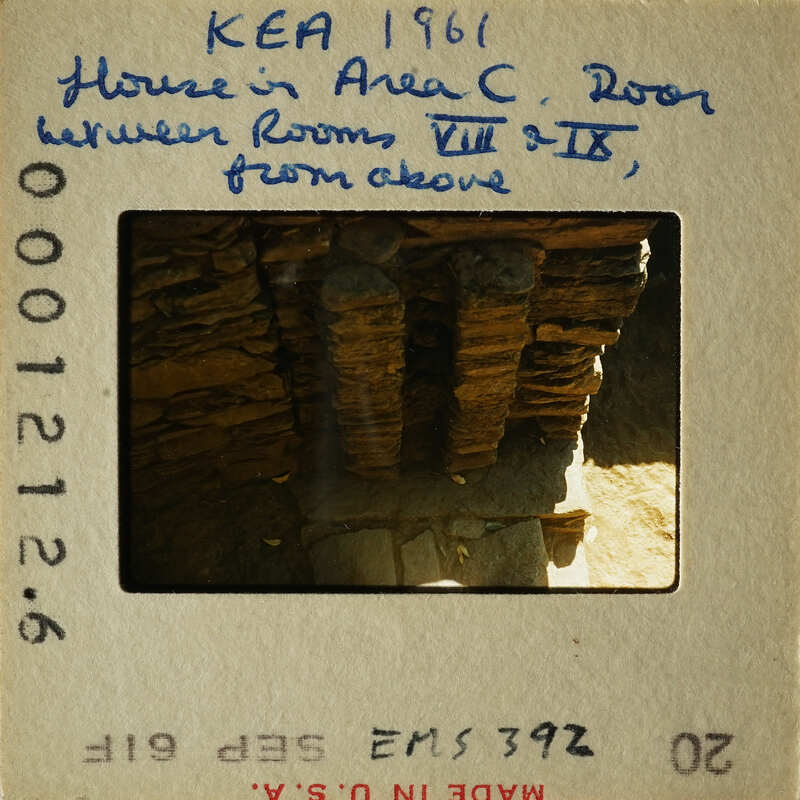 KEA 1961
House in Area C. Door
between Rooms VIII & IX,
from above
0001212.6
EMS 392
20 SEP 61F
MADE IN U.S.A.